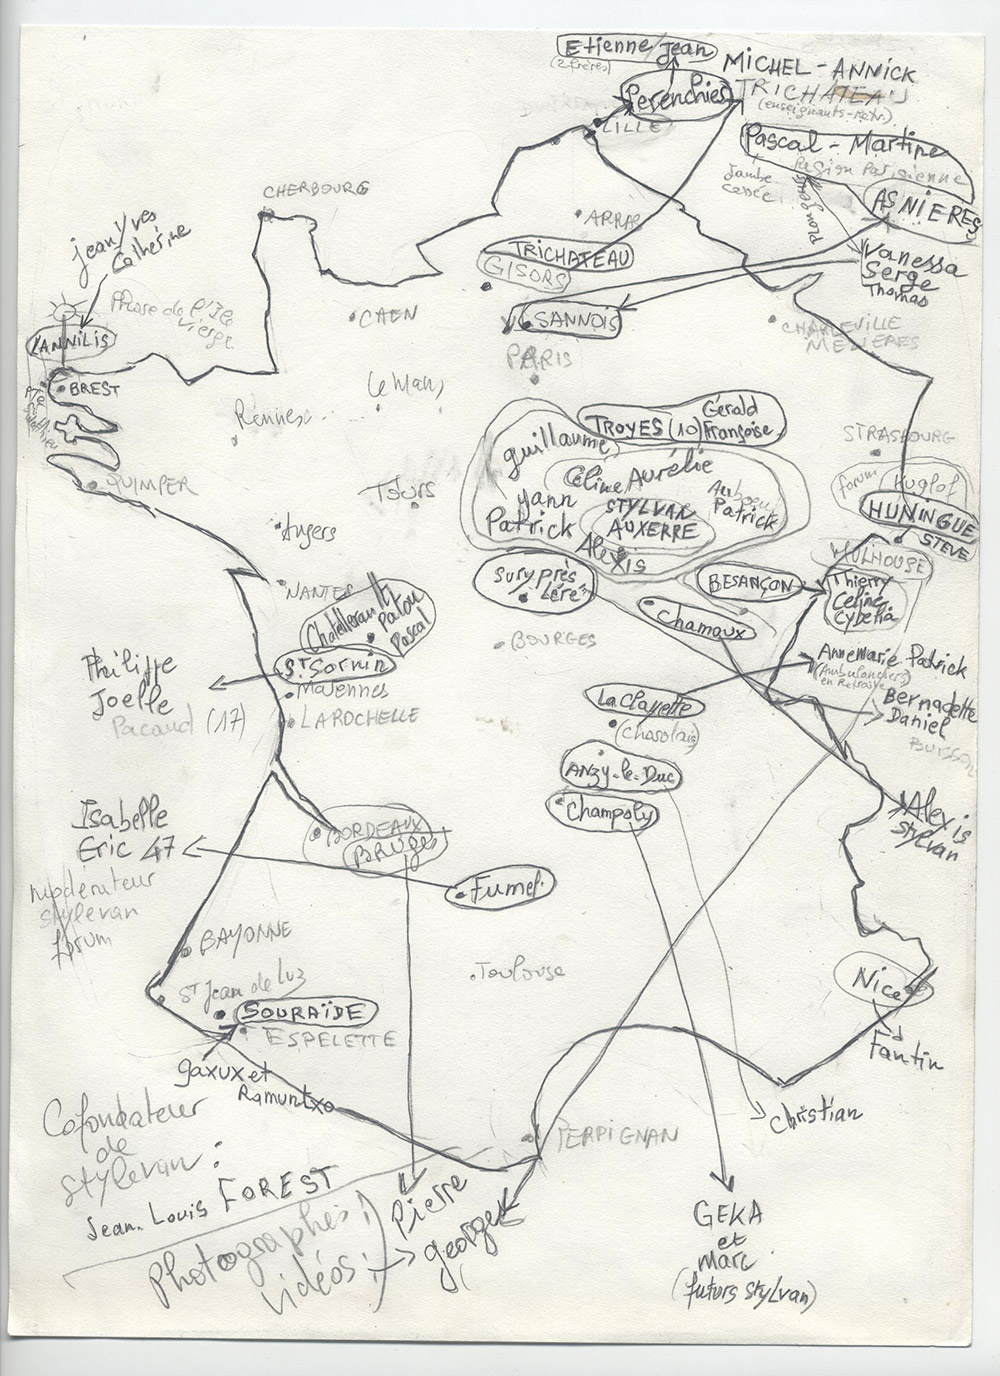 Etienne/Jean
(2 frères)
MICHEL - ANNICK
Perenchies
TRICHATEAU
(enseignants-retr.)
LILLE
Pascal - Martine
Region Parisienne
Jambe
cassée
ASNIERES
CHERBOURG
ARRAS
jean/yves
Catherine
TRICHATEAU
GISORS
Vanessa
Serge
Thomas
Phare de l'île
vierge
CAEN
SANNOIS
CHARLEVILLE
MEZIERES
LANNILIS
PARIS
BREST
Le Mans
Rennes
TROYES (10)
Gérald
Françoise
STRASBOURG
guillaume
Céline Aurélie
forum
Huglof
QUIMPER
Tours
yann
Patrick
STYLVAN
AUXERRE
Patrick
HUNINGUE
STEVE
Angers
Alexis
MULHOUSE
Sury près
Léré
BESANÇON
Thierry
Céline
Cybelia
NANTES
Chatellerault
Patou
Pascal
Chamoux
BOURGES
St Sornin
Philippe
Joelle
Pacaud (17)
Marennes
LAROCHELLE
Annemarie Patrick
(Ambulanciers)
en Retraite
La Clayette
(Charolais)
Bernadette
Daniel
BUISSON
ANZY-le-Duc
Champoly
Alexis
stylvan
Isabelle
Eric 47
modérateur
stylevan
forum
BORDEAUX
BRUGES
Fumel
BAYONNE
Toulouse
Nice
St Jean de Luz
SOURAÏDE
ESPELETTE
Fantin
gaxux et
Ramuntxo
Cofondateur
de
stylevan :
Jean-Louis FOREST
PERPIGNAN
Christian
Photographes
vidéos
Pierre
georges
GEKA
et
Marc
(futurs stylvan)